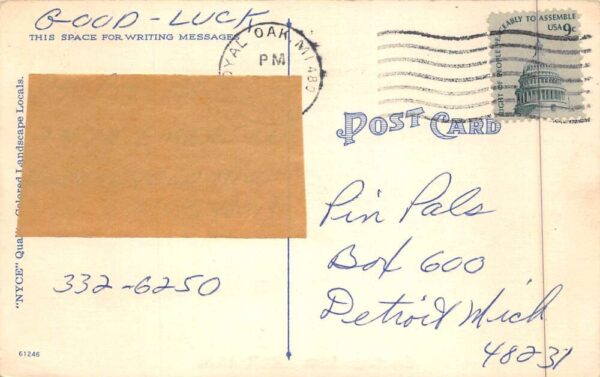 GOOD - LUCK
THIS SPACE FOR WRITING MESSAGES
ROYAL OAK, MI 480
PM
RIGHT OF PEOPLE PEACEABLY TO ASSEMBLE
USA 9c
POST CARD
"NYCE" Quality Colored Landscape Locals.
Pin Pals
Box 600
Detroit Mich
48231
332-6250
61246